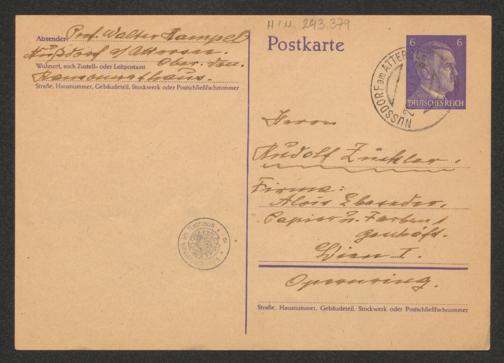 H.I.N. 243.379
Absender: Prof. Walter Hampel
Nußdorf a/ Attersee.
Wohnort, auch Zustell- oder Leitpostamt
Ober-
Straße, Hausnummer, Gebäudeteil, Stockwerk oder Postschließfachnummer
Postkarte
6 6
DEUTSCHES REICH
NUSSDORF am ATTER
Herrn
Rudolf Zückler.
Firma:
Alois Ebeseder,
Papier u. Farben
Geschäft.
Wien I.
Opernring.
Straße, Hausnummer, Gebäudeteil, Stockwerk oder Postschließfachnummer